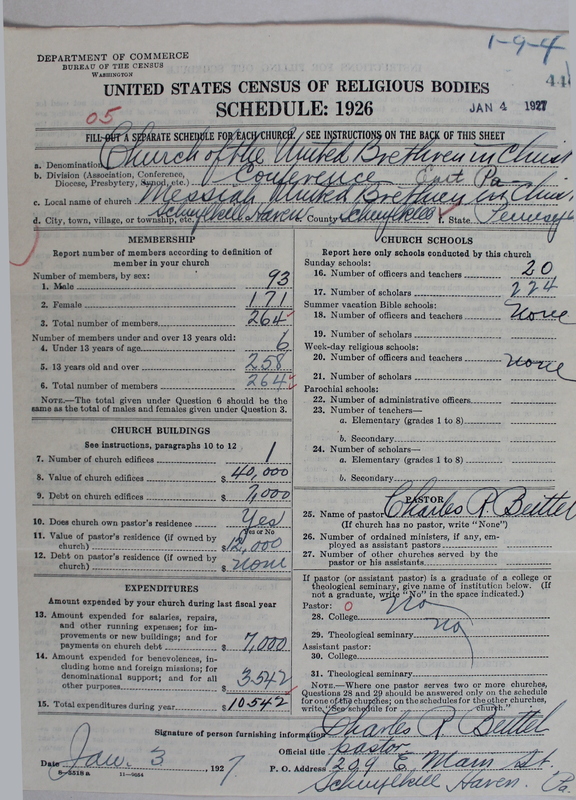 1-9-4
DEPARTMENT OF COMMERCE
BUREAU OF THE CENSUS
WASHINGTON
UNITED STATES CENSUS OF RELIGIOUS BODIES
SCHEDULE: 1926
JAN 4 1927
05
FILL OUT A SEPARATE SCHEDULE FOR EACH CHURCH. SEE INSTRUCTIONS ON THE BACK OF THIS SHEET
a. Denomination Church of the United Brethren in Christ
b. Division (Association, Conference, Diocese, Presbytery, Synod, etc.) Conference East Pa
c. Local name of church Messiah United Brethren in Christ
d. City, town, village, or township, etc. Schuylkill Haven County Schuylkill f. State
MEMBERSHIP
Report number of members according to definition of
member in your church
Number of members, by sex:
1. Male 93
2. Female 171
3. Total number of members 264
Number of members under and over 13 years old:
4. Under 13 years of age 6
5. 13 years old and over 258
6. Total number of members 264
NOTE.—The total given under Question 6 should be the
same as the total of males and females given under Question 3.
CHURCH BUILDINGS
See instructions, paragraphs 10 to 12
7. Number of church edifices 1
8. Value of church edifices $ 40,000
9. Debt on church edifices $ 7,000
10. Does church own pastor's residence Yes
Yes or No
11. Value of pastor's residence (if owned by
church) $ 12,000
12. Debt on pastor's residence (if owned by
church) $ none
EXPENDITURES
Amount expended by your church during last fiscal year
13. Amount expended for salaries, repairs,
and other running expenses; for im-
provements or new buildings; and for
payments on church debt $ 7,000
14. Amount expended for benevolences, in-
cluding home and foreign missions; for
denominational support; and for all
other purposes $ 3542
15. Total expenditures during year $ 10542
CHURCH SCHOOLS
Report here only schools conducted by this church
Sunday schools:
16. Number of officers and teachers 20
17. Number of scholars 224
Summer vacation Bible schools:
18. Number of officers and teachers none
19. Number of scholars
Week-day religious schools:
20. Number of officers and teachers none
21. Number of scholars
Parochial schools:
22. Number of administrative officers
23. Number of teachers—
a. Elementary (grades 1 to 8)
b. Secondary
24. Number of scholars—
a. Elementary (grades 1 to 8)
b. Secondary
PASTOR
25. Name of pastor Charles R. Beittel
(If church has no pastor, write "None")
26. Number of ordained ministers, if any, em-
ployed as assistant pastors
27. Number of other churches served by the
pastor or his assistants
If pastor (or assistant pastor) is a graduate of a college or
theological seminary, give name of institution below. (If
not a graduate, write "No" in the space indicated.)
Pastor: 0
28. College No
29. Theological seminary no
Assistant pastor:
30. College
31. Theological seminary
NOTE.—Where one pastor serves two or more churches,
Questions 28 and 29 should be answered only on the schedule
for one of the churches; on the schedules for the other churches,
write "See schedule for church."
Signature of person furnishing information Charles R. Beittel
Official title pastor
Date Jan. 3, 1927 P. O. Address 209 E. Main St.
8—5518a 11—9064 Schuylkill Haven. Pa.